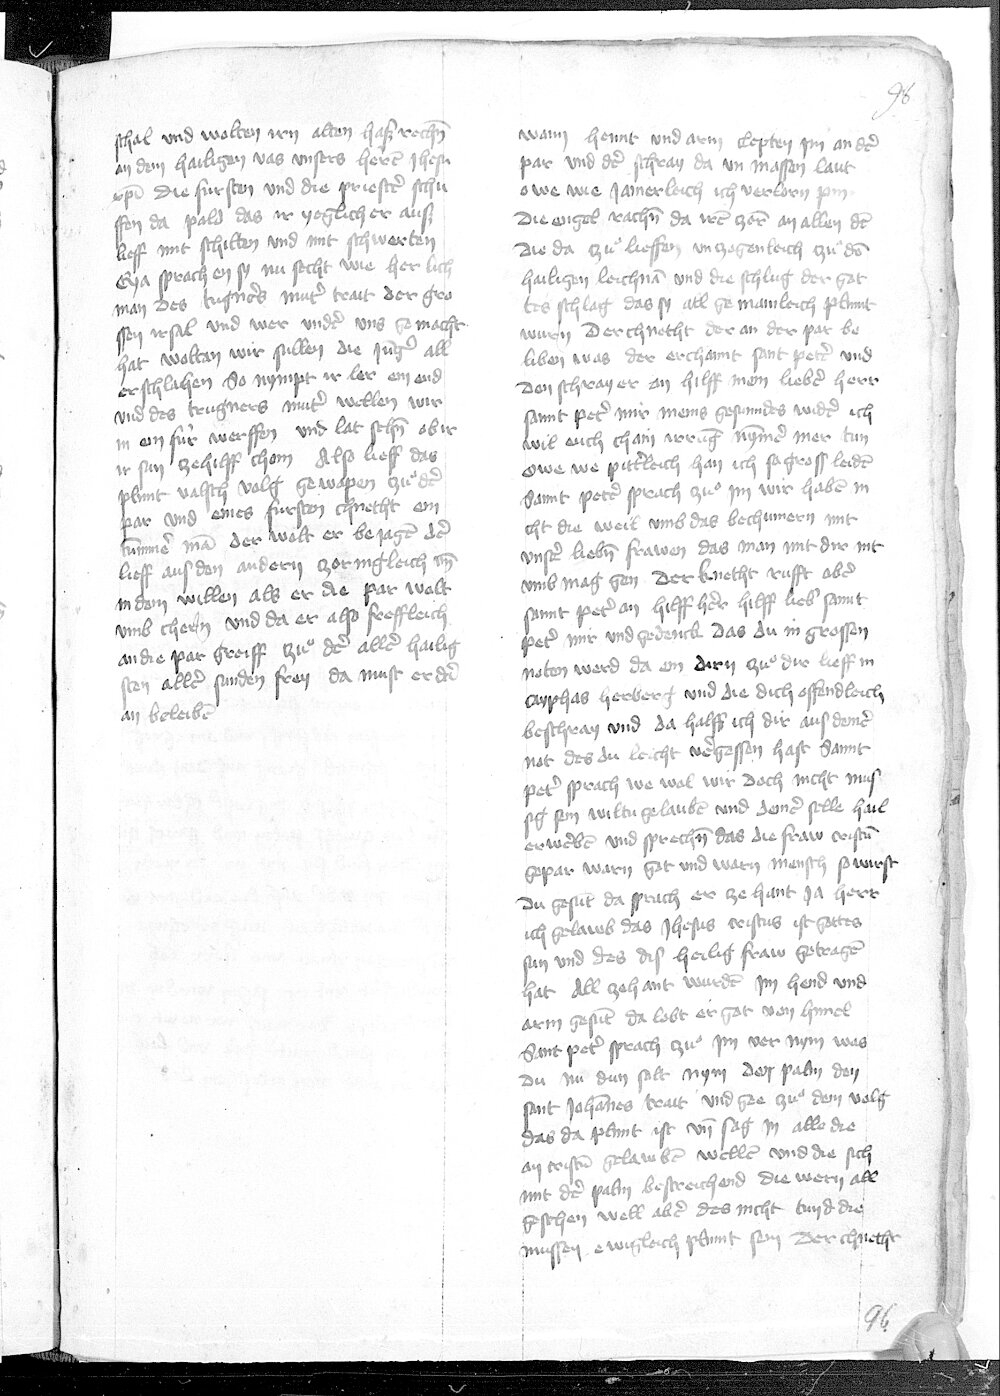 98
schal vnd wolten irn alten hass rechn̄
an dem hailigen vas vnsers herē Jhesu
xp̄i Die fursten vnd die priestē schu
ffen da pald das ir yeglicher auß
lieff mit schilten vnd mit schwerten
Eya sprachen sy nu secht wie herlich
man des trugners mutē trait der gro
ssen irsal vnd wer vndē vns gemacht
hat woltan wir sullen die Jungē all
erschlahen So nympt ir ler ein end
vnd des trugners mutē wellen wir
in ein fur werffen vnd lat sehn̄ ob ir
ir sun zehilff chom Also lieff das
plint valsch volg gewapen zuͦ dē
par vnd eines fursten chnecht ein
tummē mā der wolt er beiagē dē
lieff aus den andern zorinngleich vn̄
in dem willen als er die par wolt
vmb chern vnd da er also freffleich
an die par greiff zuͦ dē allē hailig
sten allē sunden frey da must er dē
an beleibē
wann hennt vnd arm clepten im an dē
par vnd dē schray da vn massen laut
owe wie Jamerleich ich verlorn pin
Die engel rachn̄ da irē zorē an allen dē
Die da zuͦ lieffen vnzogenleich zuͦ dē
hailigen leichnā vnd die schlug der got
tes schlag das sy all gemainleich plint
wurn Der chnecht der an der par be
liben was der erchannt sant petē vnd
den schray er an hilff mein liebē herr
sannt petē mir meins gesunndes widē ich
wil euch chain irrug nymē mer tun
Owe we pittēleich han ich so gross leidē
Sannt petē sprach zuͦ im wir habē in
cht die weil vmb das bechumern mit
vnsē liebn̄ frawen das man mit dir nit
vmb mag gen Der knecht rufft abē
sannt petē an hilff hēr hilff lieb sannt
petē mir vnd gedenck das du in grossen
noten werd da ein dirn zuͦ dir lieff in
cayphas herberg vnd die dich offendleich
beschray vnd da halff ich dir aus deinē
not des du leicht vēgessen hast Sannt
petē sprach we wol wir doch nicht mus
sig sein wiltu gelaubē vnd deinē selle hail
erwēbē vnd sprechn̄ das die fraw cristū
gepar warn got vnd warn mensch so wirst
du gesūt da sprach er zehant Ja herr
ich gelawb das Jhesus cristus ist gottes
sun vnd des dis heilig fraw getragē
hat All zehant wurdē im hend vnd
arm gesūt da lobt er got von himel
Sant petē sprach zuͦ im ver nym was
du nu dun solt nym den palm den
sant Johānes trait vnd gee zuͦ dem volg
das da plint ist vn̄ sag in alle die
an cristū gelawbē wellē vnd die sich
mit dē palm bestreichend die wern all
gesehen well abē des nicht tund die
mussen ewigleich plint sein Der chnecht
96